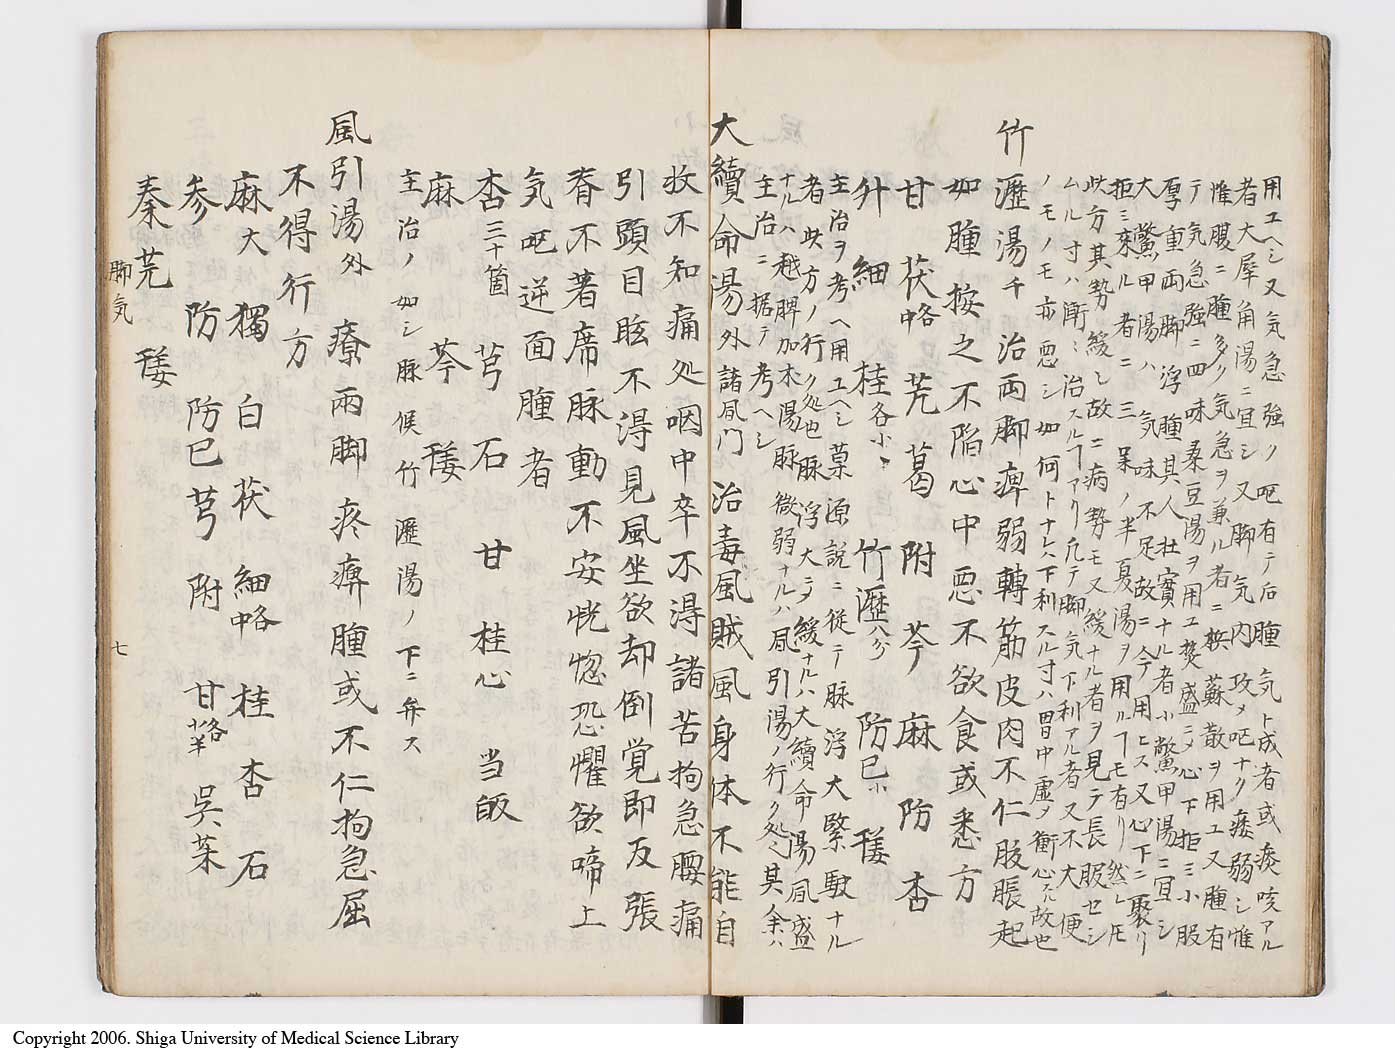 用エヘシ又気急強ク呕有テ后腫気ト成者或痰咳アル
者大犀角湯ニ宜シ又脚気内攻メ呕ナク痿弱シ惟
惟腹ニ腫多ク気急ヲ兼ル者ニ檳蘇散ヲ用ユ又腫有
テ気急強ニ四味桑豆湯ヲ用エ焚盛ニメ心下拒ミ小服
厚重両脚浮腫其人壮實ナル者小鱉甲湯ニ宜シ
大鱉甲湯ハ気味不足故ニ今用ヒス又心下ニ聚リ
拒ミ来ル者ニ三呆ノ半夏湯ヲ用ルヿモ有リ然レモ
此方其勢緩シ故ニ病勢モ又緩ナル者ヲ見テ長服セシ
ムル寸ハ漸〻治スルヿアリ凡テ脚気下利アル者又不大便
ノモノモ亦悪シ如何トナレハ下利スル寸ハ胃中虚メ衝心スル故也
竹瀝湯千 治両脚痺弱轉筋皮肉不仁股脹起
如腫按之不陷心中悪不欲食或悉方
甘 茯略 芫 葛 附 芩 麻 防 杏
升 細 桂各小〻 竹瀝八分 防已小 䕪
主治ヲ考ヘ用エヘシ菓源説ニ従テ脉浮大緊駛ナル
者此方ノ行ク処也脉浮大ニメ緩ナルハ大續命湯凮盛
ナルハ越脾加朮湯脉微弱ナルハ凮引湯ノ行ク処ヘ其余ハ
主治ニ据テ考ヘシ
大續命湯外諸凮門 治毒風賊風身体不能自
收不知痛処咽中卒不得諸苦拘急腰痛
引頸目眩不淂見風坐欲却倒覚即反張
脊不著席脉動不安恍惚恐懼欲啼上
気呕逆面腫者
杏三十箇 芎 石 甘 桂心 当皈
麻 芩 䕪
主治ノ如シ脉候竹瀝湯ノ下ニ弁ス
風引湯外 療両脚疼痹腫或不仁拘急屈
不得行方
麻大 獨 白 茯 細略中 桂 杏 石
参 防 防已 芎 附 甘略半 呉茱
秦芫 䕪
脚気
七
Copyright 2006. Shiga University of Medical Science Library